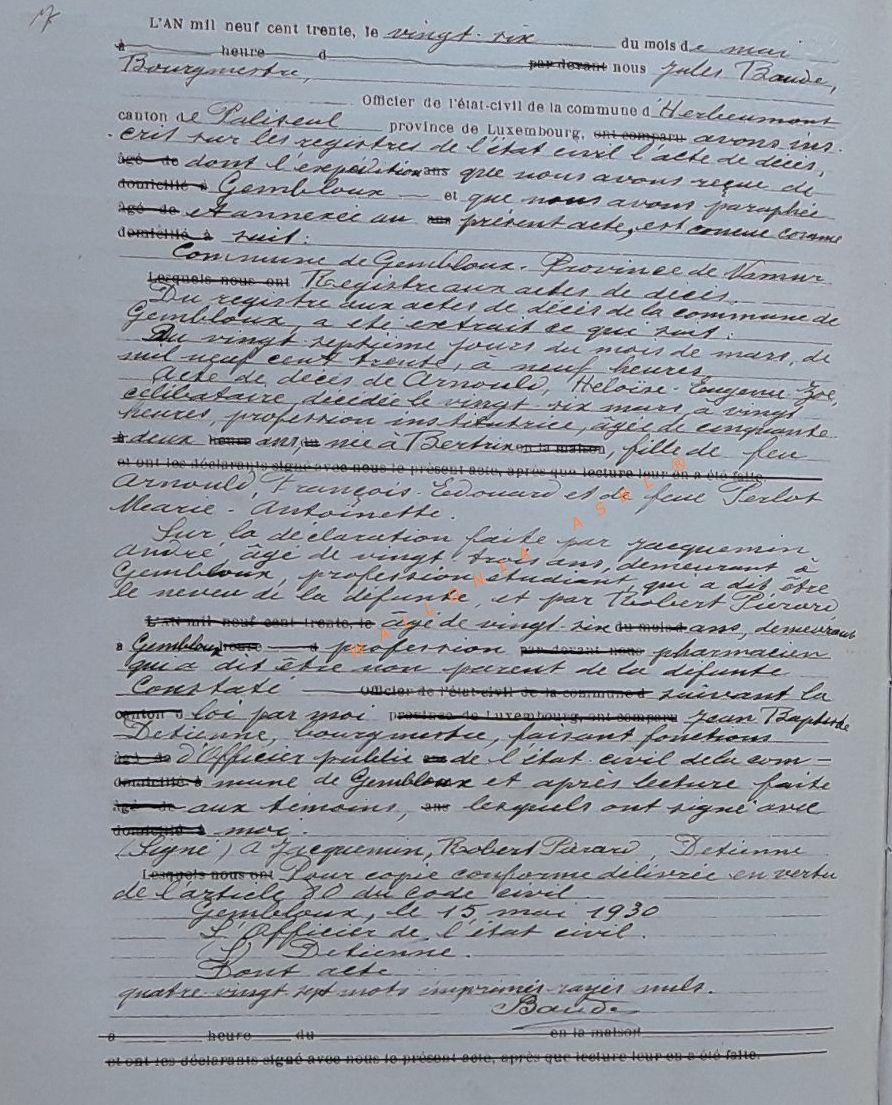 L'AN mil neuf cent trente, le vingt-six du mois de mai
à heure d par devant nous Jules Baude,
Bourgmestre,
Officier de l'état-civil de la commune d'Herbeumont
canton de Paliseul province de Luxembourg, ont comparu avons ins-
crit sur les registres de l'état civil l'acte de décès,
âgé de dont l'expédition ans que nous avons reçue de
domicilié à Gembloux et que nous avons paraphée
âgé de et annexée au ans présent acte, est conçue comme
domicilié à suit:
Commune de Gembloux. Province de Namur
Lesquels nous ont Registre aux actes de décès.
Du registre aux actes de décès de la commune de
Gembloux, a été extrait ce qui suit:
Du vingt septième jours du mois de mars, de
mil neuf cent trente, à neuf heures
Acte de décès de Arnould, Héloïse-Eugénie-Zoé,
célibataire, décédée le vingt six mars, à vingt
heures, profession institutrice, âgée de cinquante-
à deux heure ans, du née à Bertrix en la maison, fille de feu
et ont les déclarants signé avec nous le présent acte, après que lecture leur en a été faite.
Arnould, François-Edouard et de feue Perlot
Marie-Antoinette.
Sur la déclaration faite par Jacquemin
André, âgé de vingt trois ans, demeurant à
Gembloux, profession étudiant, qui a dit être
le neveu de la défunte, et par Robert Piérard
L'AN mil neuf cent trente, le âgé de vingt six du mois d ans, demeurant
à Gembloux heure d profession par devant nous pharmacien
qui a dit être non parent de la défunte
Constaté Officier de l'état-civil de la commune d suivant la
canton d loi par moi province de Luxembourg, ont comparu Jean Baptiste
Detienne, bourgmestre, faisant fonctions
âgé de d'Officier public ans de l'état civil de la com-
domicilié à mune de Gembloux et après lecture faite
âgé de aux témoins, ans lesquels ont signé avec
domicilié à moi.
(Signé) A Jacquemin, Robert Piérard Detienne
Lesquels nous ont Pour copie conforme délivrée en vertu
de l'article 80 du code civil
Gembloux, le 15 mai 1930
L'Officier de l'état civil.
Detienne.
Dont acte
quatre-vingt sept mots imprimés rayés nuls.
Baude
à heure du en la maison
et ont les déclarants signé avec nous le présent acte, après que lecture leur en a été faite.
WALLONIA ASBL ®